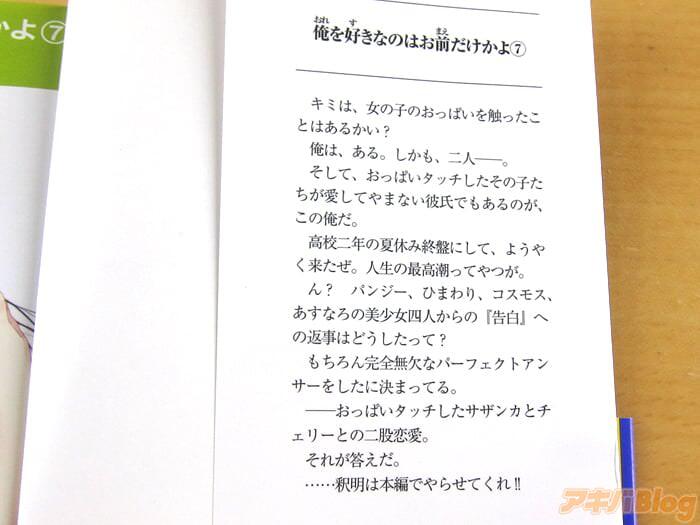 かよ⑦
俺を好きなのはお前だけかよ⑦
キミは、女の子のおっぱいを触ったこ
とはあるかい?
俺は、ある。しかも、二人――。
そして、おっぱいタッチしたその子た
ちが愛してやまない彼氏でもあるのが、
この俺だ。
高校二年の夏休み終盤にして、ようや
く来たぜ。人生の最高潮ってやつが。
ん? パンジー、ひまわり、コスモス、
あすなろの美少女四人からの『告白』へ
の返事はどうしたって?
もちろん完全無欠なパーフェクトアン
サーをしたに決まってる。
――おっぱいタッチしたサザンカとチ
ェリーとの二股恋愛。
それが答えだ。
……釈明は本編でやらせてくれ!!
アキバBlog